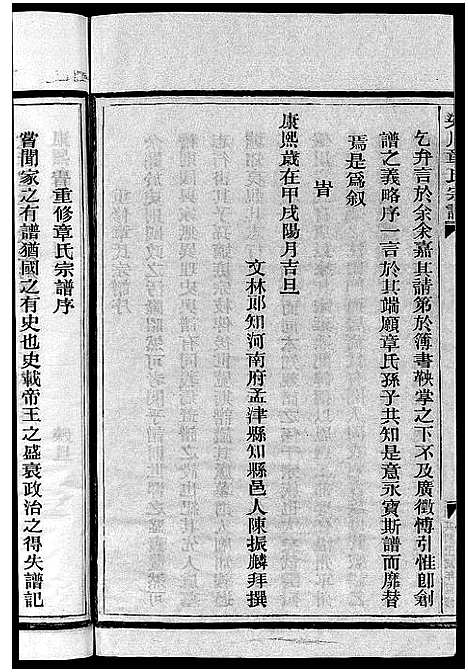 乞弁言於余余嘉其請第於簿書鞅掌之下不及廣徵博引惟卽創
譜之義略序一言於其端願章氏孫子共知是意永寶斯譜而靡替
焉是爲叙
旹
康熙歲在甲戌陽月吉旦
文林郎知河南府孟津縣知縣邑人陳振麟拜撰
重修章氏宗譜序
嘗聞家之有譜猶國之有史也史載帝王之盛衰政治之得失譜記
川章氏宗譜